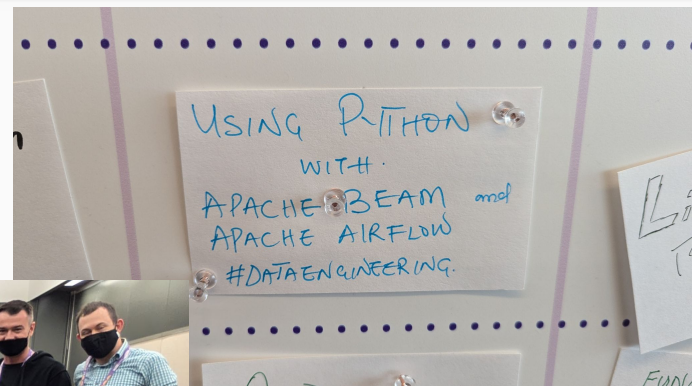 USING PYTHON
WITH.
APACHE BEAM and
APACHE AIRFLOW
#DATAENGINEERING.